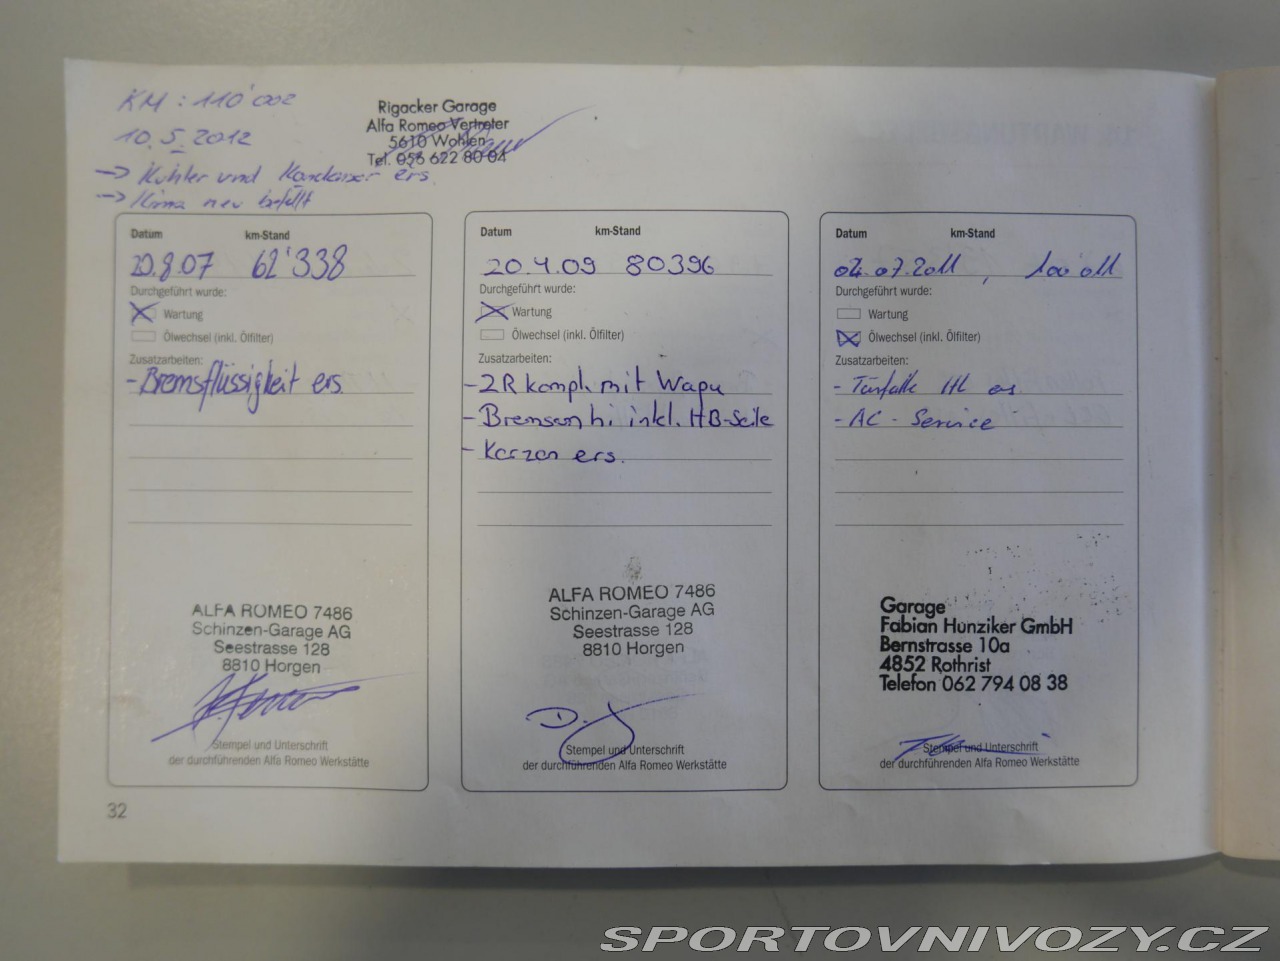 KM : 110'002
10.5.2012
→ Kühler und Kondensor ers.
→ Klima neu befüllt
Rigacker Garage
Alfa Romeo Vertreter
5610 Wohlen
Tel. 056 622 80 04
Datum km-Stand
20.8.07 62'338
Durchgeführt wurde:
Wartung
Ölwechsel (inkl. Ölfilter)
Zusatzarbeiten:
- Bremsflüssigkeit ers.
ALFA ROMEO 7486
Schinzen-Garage AG
Seestrasse 128
8810 Horgen
Stempel und Unterschrift
der durchführenden Alfa Romeo Werkstätte
Datum km-Stand
20.4.09 80396
Durchgeführt wurde:
Wartung
Ölwechsel (inkl. Ölfilter)
Zusatzarbeiten:
- ZR kompl. mit Wapu
- Bremsen hi inkl. HB-Seile
- Kerzen ers.
ALFA ROMEO 7486
Schinzen-Garage AG
Seestrasse 128
8810 Horgen
Stempel und Unterschrift
der durchführenden Alfa Romeo Werkstätte
Datum km-Stand
04.07.2011, 100'011
Durchgeführt wurde:
Wartung
Ölwechsel (inkl. Ölfilter)
Zusatzarbeiten:
- AC - Service
Garage
Fabian Hunziker GmbH
Bernstrasse 10a
4852 Rothrist
Telefon 062 794 08 38
Stempel und Unterschrift
der durchführenden Alfa Romeo Werkstätte
32
SPORTOVNIVOZY.CZ